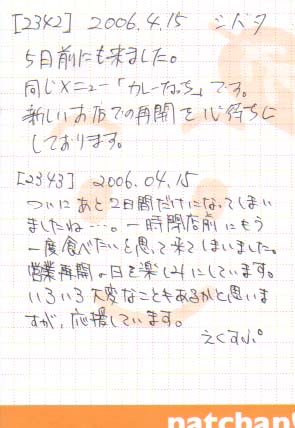 [2342] 2006.4.15 シバタ
5日前にも来ました。
同じメニュー「カレーなっち」です。
新しいお店での再開を心待ちに
しております。
[2343] 2006.04.15
ついにあと2日間だけになってしまい
ましたね…。一時閉店前にもう
一度食べたいと思って来てしまいました。
営業再開の日を楽しみにしています。
いろいろ大変なこともあるかと思いま
すが、応援しています。
えくすぷ°
patchan